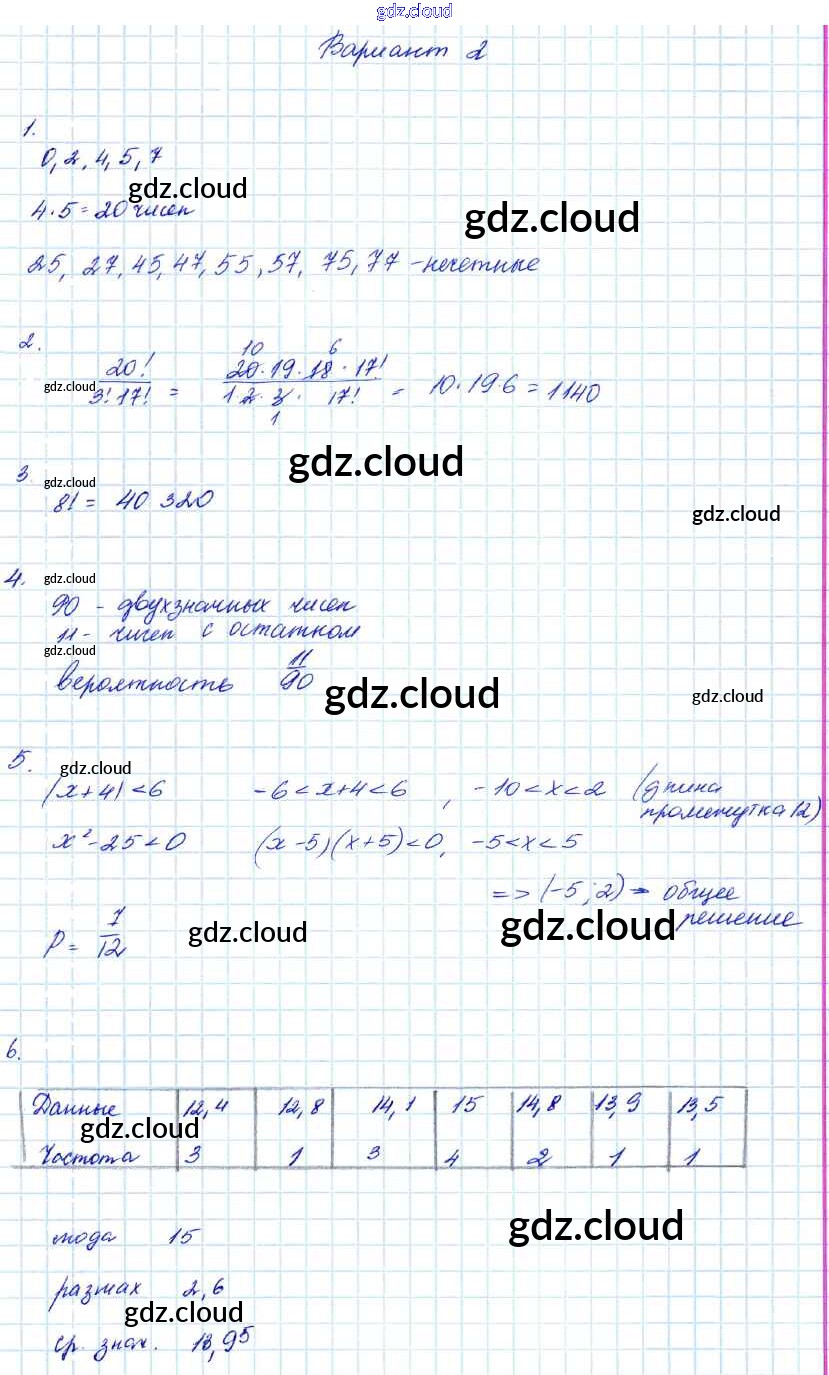 gdz.cloud
Вариант 2
1.
0, 2, 4, 5, 7
gdz.cloud
4·5=20 чисел
gdz.cloud
25, 27, 45, 47, 55, 57, 75, 77 - нечетные
2.
20!/3!17! = 20·19·18·17!/1·2·3·17! = 10·19·6 = 1140
10 6
1
gdz.cloud
gdz.cloud
3.
gdz.cloud
8! = 40 320
gdz.cloud
4.
gdz.cloud
90 - двухзначных чисел
11 - чисел с остатком
gdz.cloud
вероятность 11/90
gdz.cloud
gdz.cloud
5.
gdz.cloud
|x+4|<6 -6<x+4<6, -10<x<2 (длина
промежутка 12)
x²-25<0 (x-5)(x+5)<0, -5<x<5
=> (-5; 2) - общее
решение
gdz.cloud
P = 7/12
gdz.cloud
6.
Данные 12,4 12,8 14,1 15 14,8 13,9 13,5
gdz.cloud
Частота 3 1 3 4 2 1 1
мода 15
gdz.cloud
размах 2,6
gdz.cloud
ср. знач. 13,95